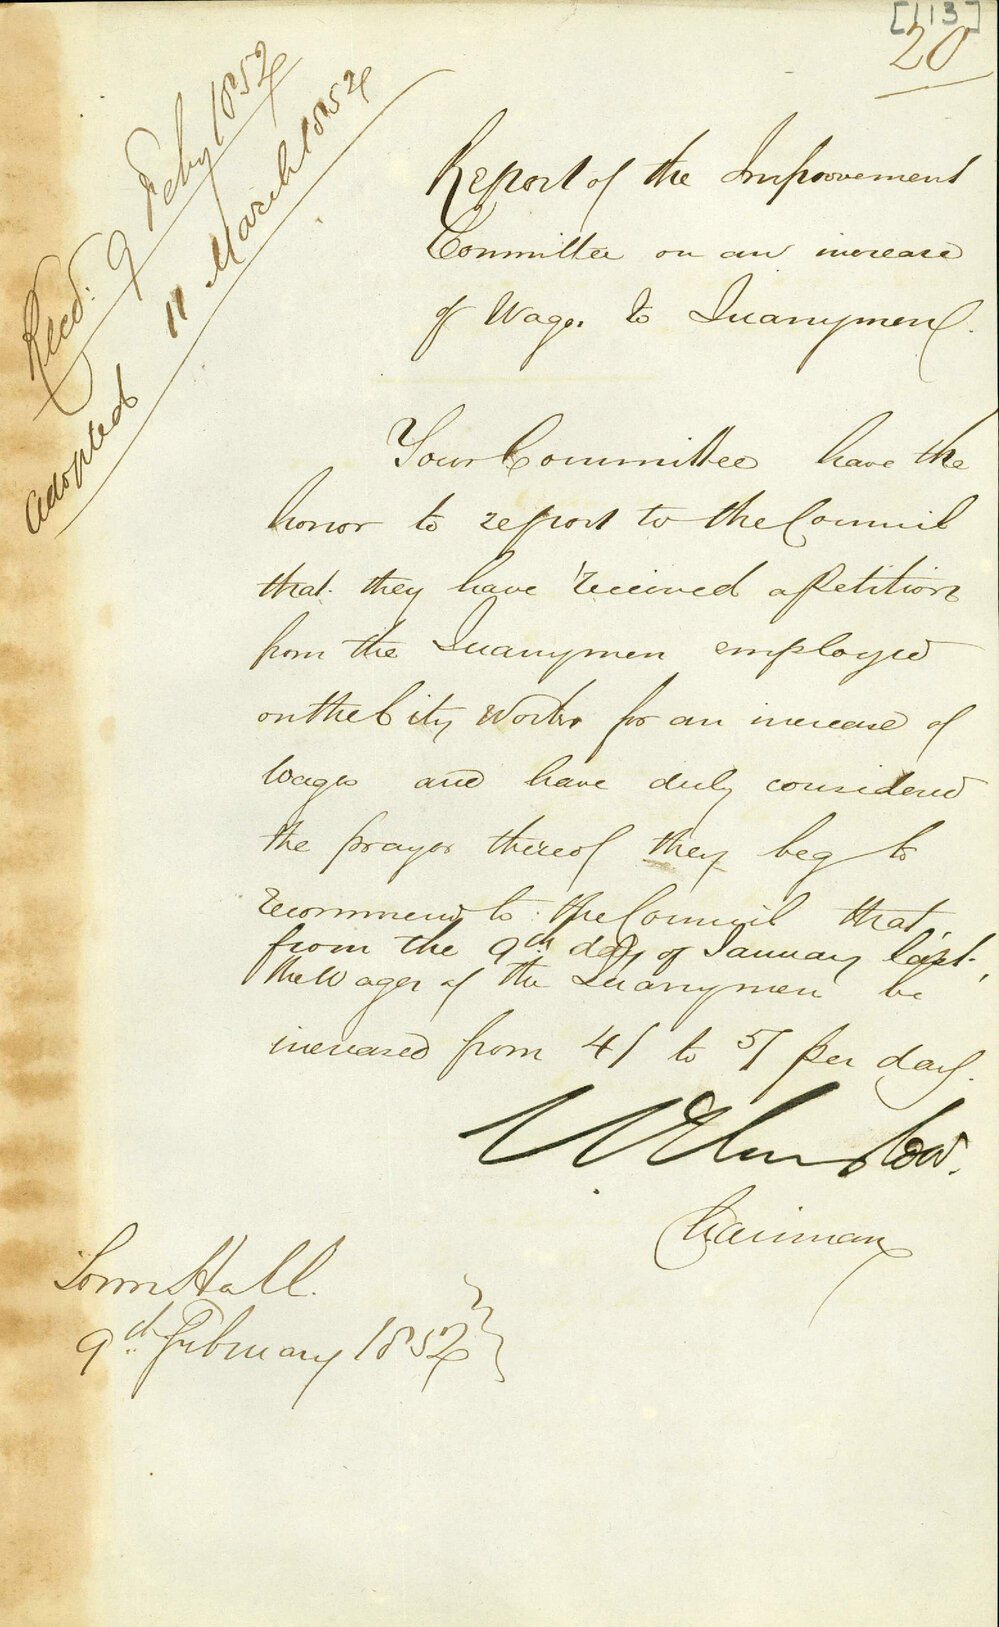 [113]
20
Recd. 9 Feby 1852
adopted 11 March 1852
Report of the Improvement
Committee on an increase
of Wages to Quarrymen.
Your Committee have the
honor to report to the Council
that they have received a Petition
from the Quarrymen employed
on the City Works for an increase of
Wages and have duly considered
the prayer thereof they beg to
recommend to the Council that,
from the 9th day of January last,
the Wages of the Quarrymen be
increased from 4/ to 5/ per day.
Chairman
Town Hall.
9th February 1852